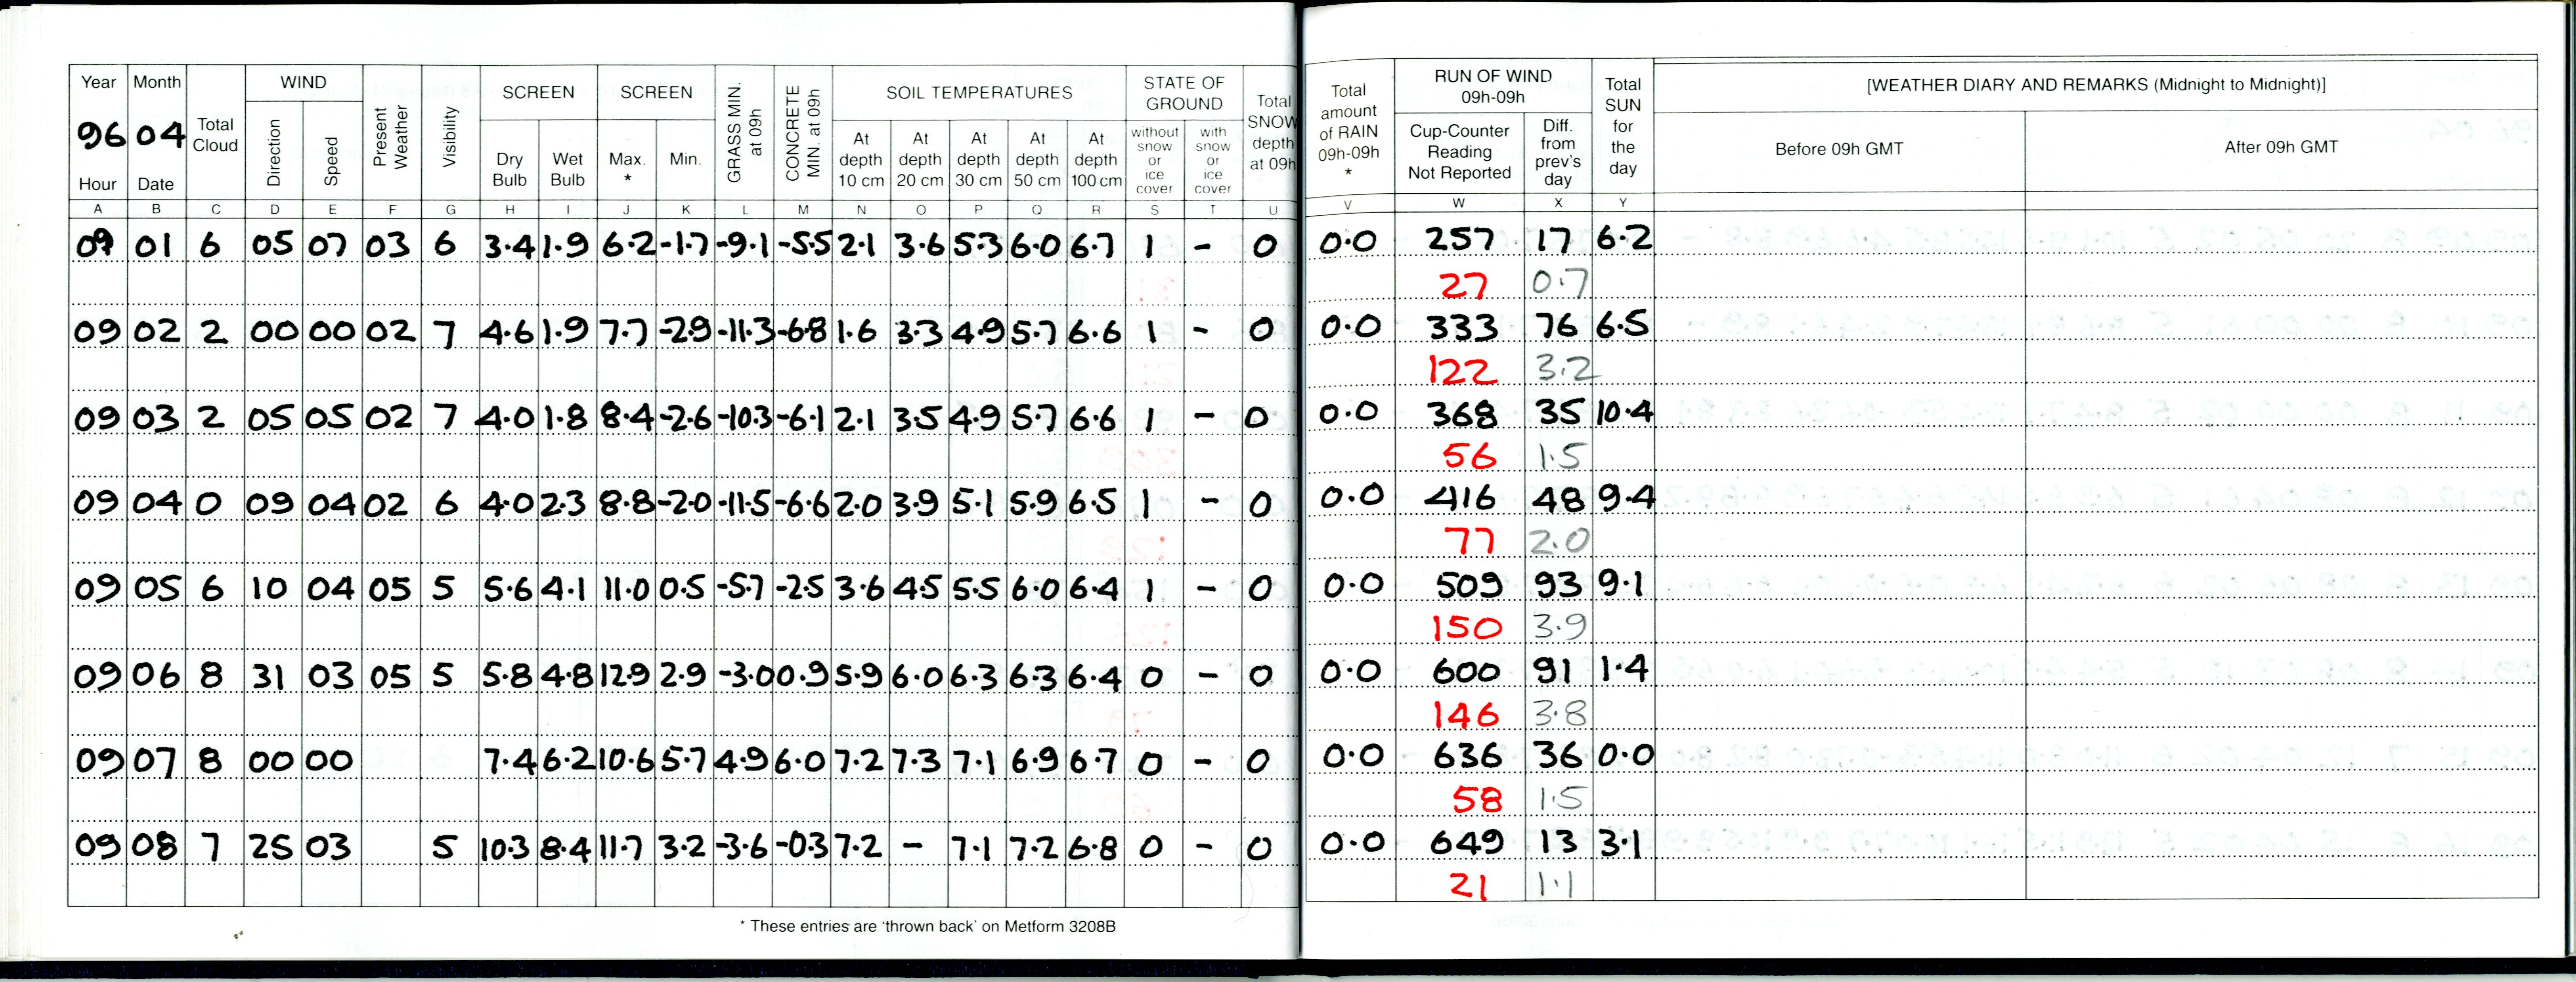 Year Month Total Cloud WIND Present Weather Visibility SCREEN SCREEN GRASS MIN. at 09h CONCRETE MIN. at 09h SOIL TEMPERATURES STATE OF GROUND Total SNOW depth at 09h Total amount of RAIN 09h-09h * RUN OF WIND 09h-09h Total SUN for the day [WEATHER DIARY AND REMARKS (Midnight to Midnight)]
96 04
Hour Date Direction Speed Dry Bulb Wet Bulb Max. * Min. At depth 10 cm At depth 20 cm At depth 30 cm At depth 50 cm At depth 100 cm without snow or ice cover with snow or ice cover Cup-Counter Reading Not Reported Diff. from prev's day Before 09h GMT After 09h GMT
A B C D E F G H I J K L M N O P Q R S T U V W X Y
09 01 6 05 07 03 6 3.4 1.9 6.2 -1.7 -9.1 -5.5 2.1 3.6 5.3 6.0 6.7 1 - 0 0.0 257 17 6.2
27 0.7
09 02 2 00 00 02 7 4.6 1.9 7.7 -2.9 -11.3 -6.8 1.6 3.3 4.9 5.7 6.6 1 - 0 0.0 333 76 6.5
122 3.2
09 03 2 05 05 02 7 4.0 1.8 8.4 -2.6 -10.3 -6.1 2.1 3.5 4.9 5.7 6.6 1 - 0 0.0 368 35 10.4
56 1.5
09 04 0 09 04 02 6 4.0 2.3 8.8 -2.0 -11.5 -6.6 2.0 3.9 5.1 5.9 6.5 1 - 0 0.0 416 48 9.4
77 2.0
09 05 6 10 04 05 5 5.6 4.1 11.0 0.5 -5.7 -2.5 3.6 4.5 5.5 6.0 6.4 1 - 0 0.0 509 93 9.1
150 3.9
09 06 8 31 03 05 5 5.8 4.8 12.9 2.9 -3.0 0.9 5.9 6.0 6.3 6.3 6.4 0 - 0 0.0 600 91 1.4
146 3.8
09 07 8 00 00 7.4 6.2 10.6 5.7 4.9 6.0 7.2 7.3 7.1 6.9 6.7 0 - 0 0.0 636 36 0.0
58 1.5
09 08 7 25 03 5 10.3 8.4 11.7 3.2 -3.6 -0.3 7.2 - 7.1 7.2 6.8 0 - 0 0.0 649 13 3.1
21 1.1
* These entries are 'thrown back' on Metform 3208B